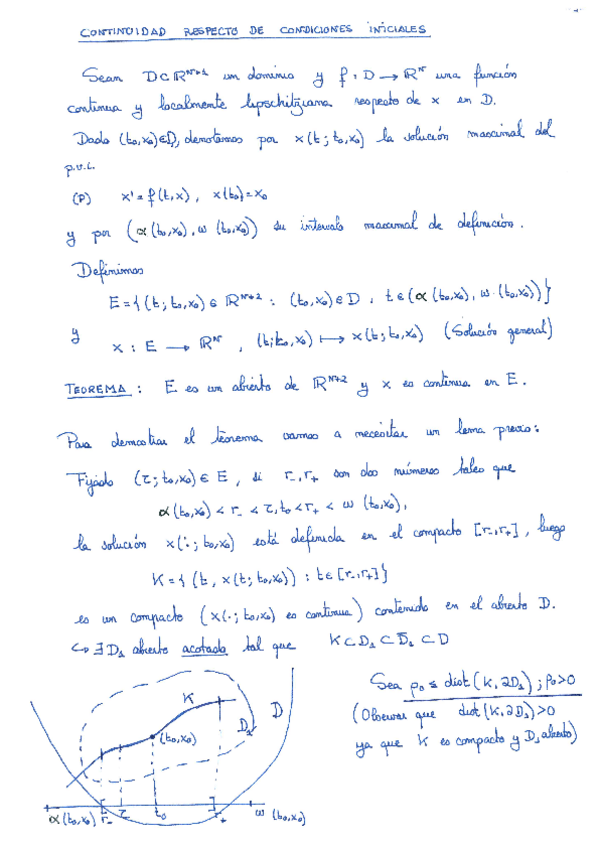 CONTINUIDAD RESPECTO DE CONDICIONES INICIALES
Sean D⊂ℝᴺ⁺¹ un dominio y f: D → ℝᴺ una función
continua y localmente lipschitziana respecto de x en D.
Dado (t₀,x₀)∈D, denotamos por x(t; t₀,x₀) la solución maximal del
p.v.i.
(P) x'=f(t,x), x(t₀)=x₀
y por (α(t₀,x₀), ω(t₀,x₀)) su intervalo maximal de definición.
Definimos
E={(t; t₀,x₀)∈ℝᴺ⁺² : (t₀,x₀)∈D, t∈(α(t₀,x₀), ω(t₀,x₀))}
y
x : E → ℝᴺ, (t;t₀,x₀) ↦ x(t; t₀,x₀) (Solución general)
TEOREMA: E es un abierto de ℝᴺ⁺² y x es continua en E.
Para demostrar el teorema vamos a necesitar un lema previo:
Fijado (τ; t₀,x₀) ∈ E, si r₋, r₊ son dos números tales que
α(t₀,x₀) < r₋ < τ, t₀ < r₊ < ω(t₀,x₀),
la solución x(·; t₀,x₀) está definida en el compacto [r₋,r₊], luego
K={(t, x(t; t₀,x₀)) : t∈[r₋,r₊]}
es un compacto (x(·; t₀,x₀) es continua) contenido en el abierto D.
↪ ∃ D₁ abierto acotado tal que K⊂D₁⊂D̄₁⊂D
Sea ρ₀ ≤ dist(K, ∂D₁); ρ₀>0
(Observar que dist(K, ∂D₁)>0
ya que K es compacto y D₁ abierto)
K
D₁
D
(t₀,x₀)
α(t₀,x₀) r₋ τ t₀ r₊ ω(t₀,x₀)